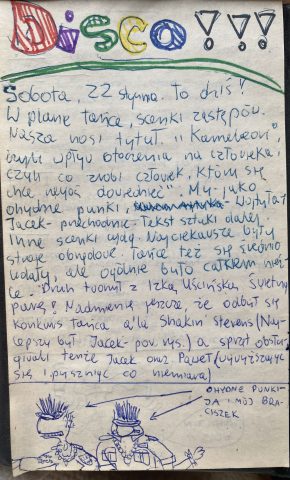 Disco!!!
Sobota, 22 stycznia. To dziś!
W planie tańce, scenki zastępów.
Nasza nosi tytuł: "Kameleon",
czyli wpływ otoczenia na człowieka i
czyli co zrobi człowiek, który się
chce My- jako
ohydne punki,
Jacek- przechodnie. Tekst sztuki dalej.
Inne scenki Najciekawsze były
stroje Tańce też się średnio
udały, ale ogólnie było całkiem nieź-
le. Druh tworzył z Izką Uścińską świetną
parę! Nadmienię jeszcze, że odbył się
konkurs tańca a'la Shakin Stevens (Naj-
lepszy był: Jacek- pow. rys.) a sprzęt obsłu-
giwali tenże Jacek oraz Paweł (wywyższając
się i pyszniąc co niemiara)
OHYDNE PUNKI-
JA I MÓJ BRA-
CISZEK